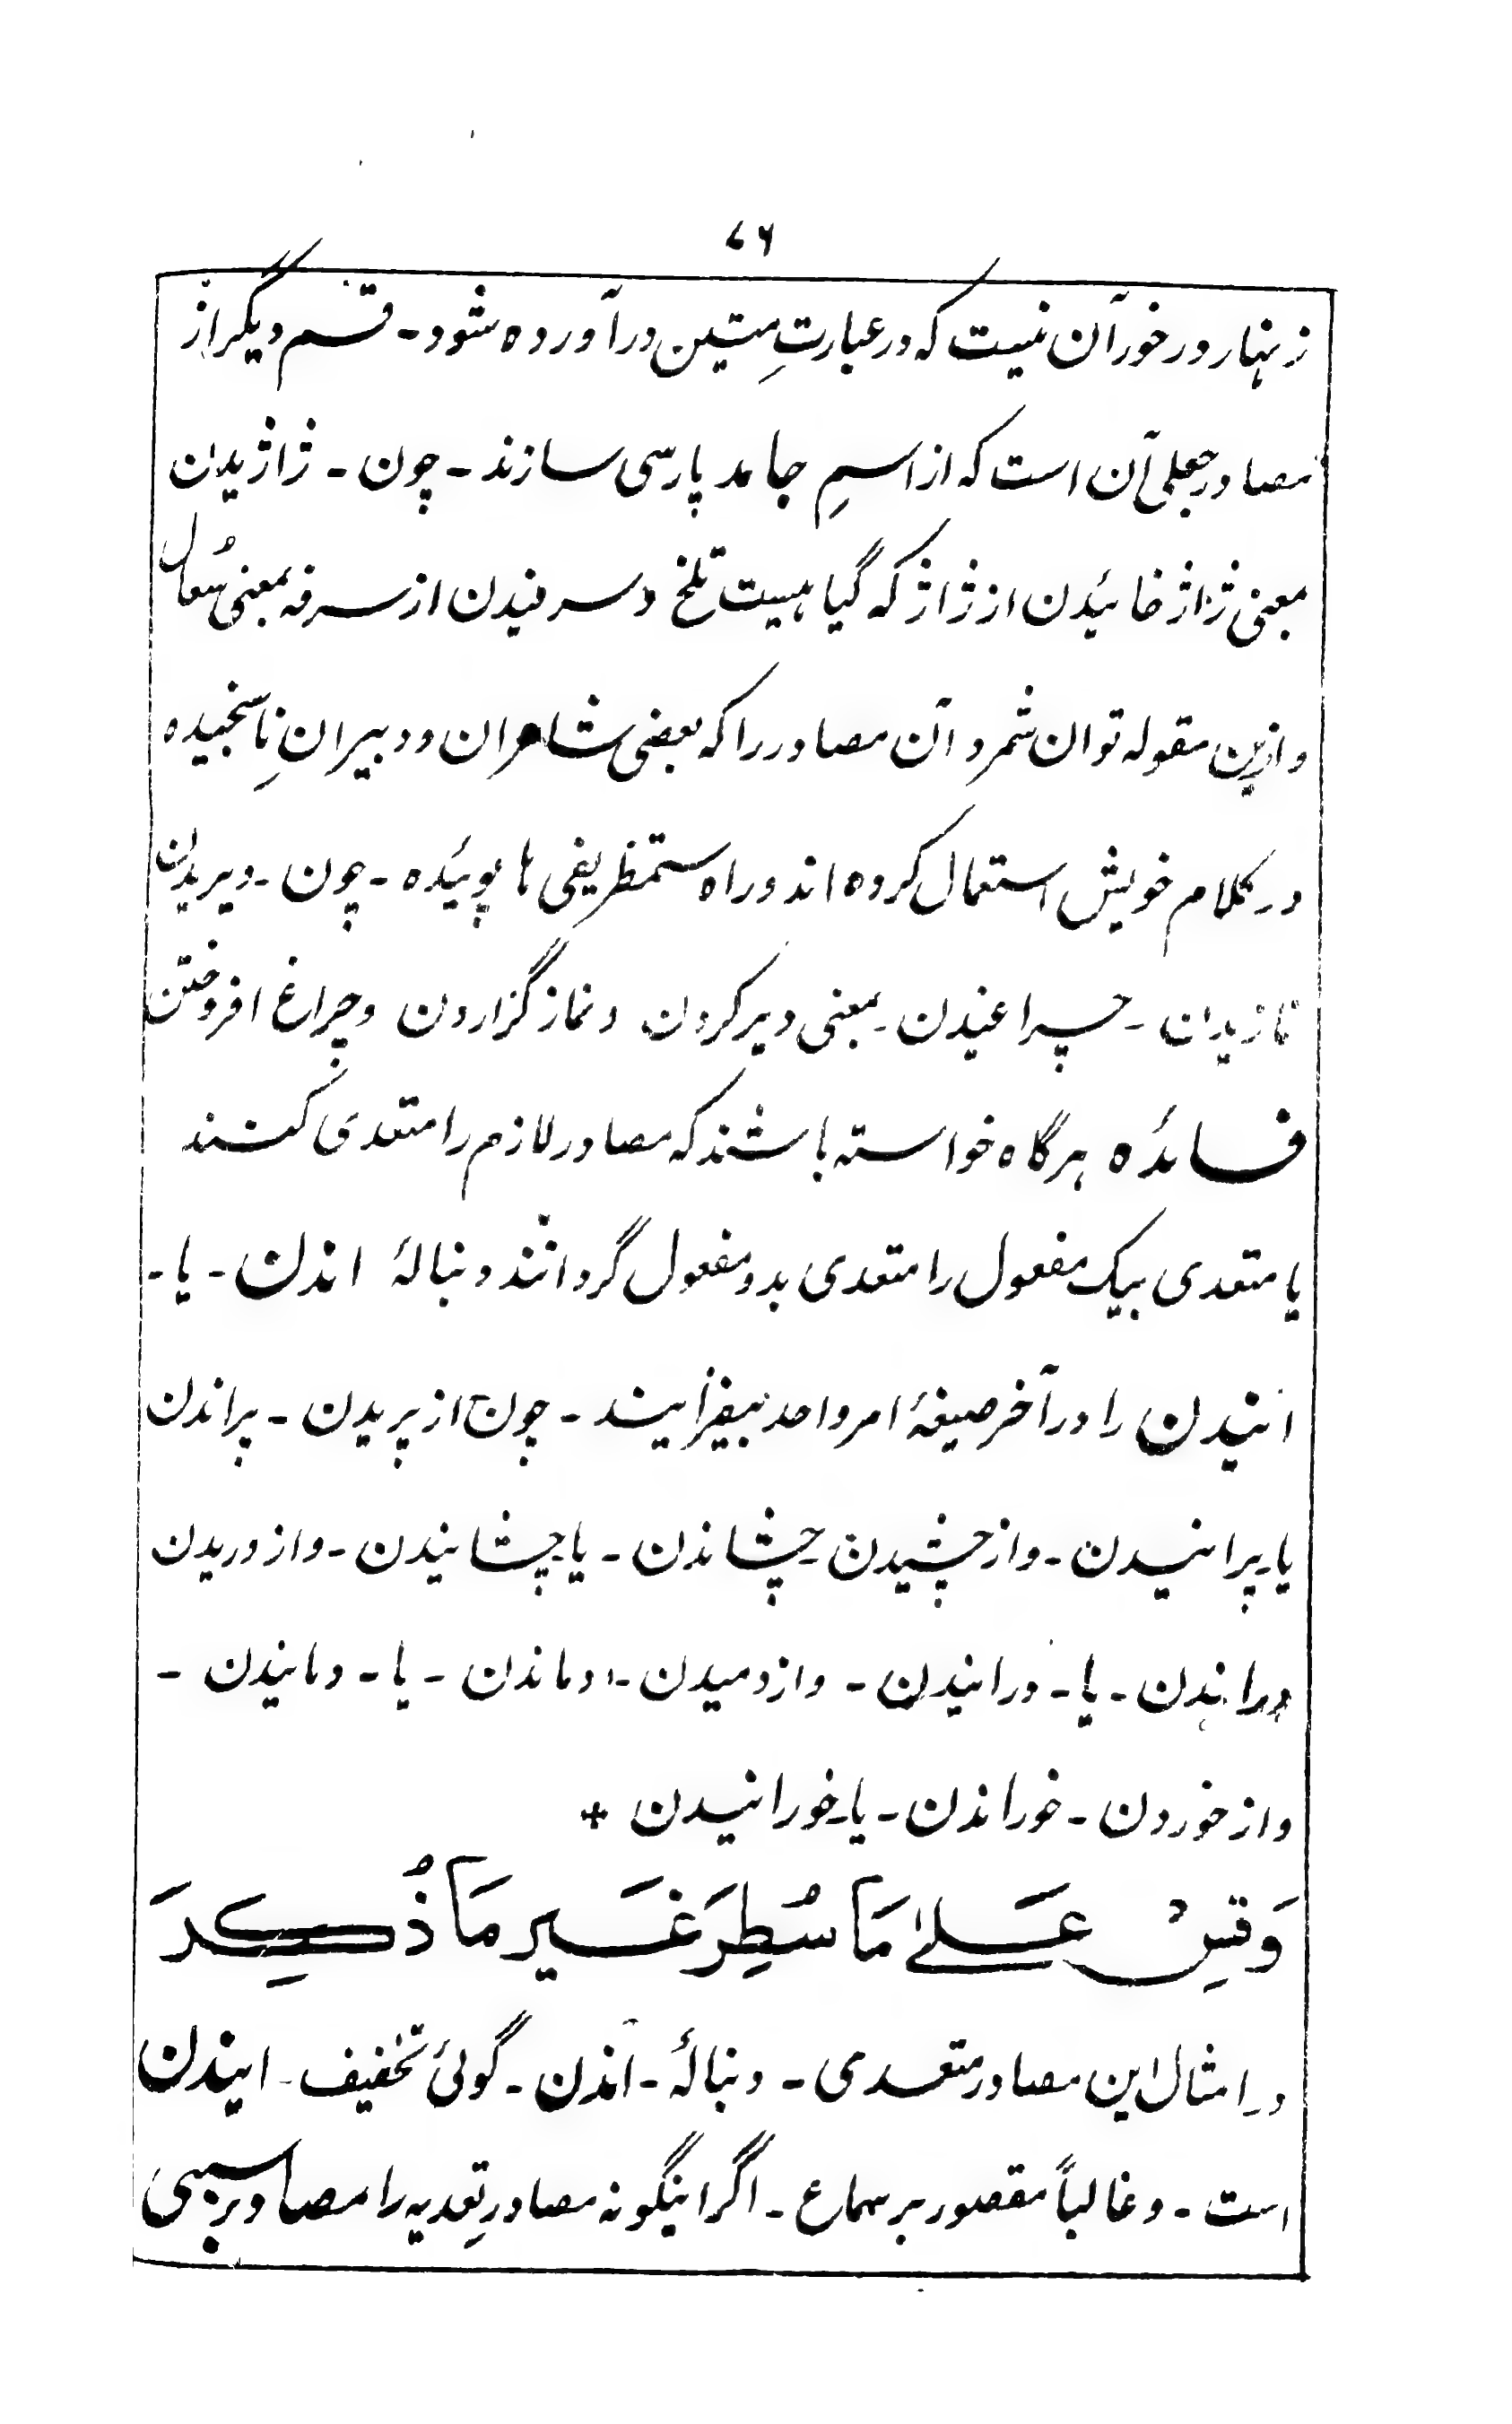 ۷۶
زنهار درخور آن نیست که در عبارتِ متین درآورده شود - قسم دیگر از
مصادر جعلی آن است که از اسمِ جامد پارسی سازند - چون - ژاژیدن
بمعنی ژاژ خائیدن از ژاژ که گیاهیست تلخ و سرفیدن از سرفه بمعنی سُعال
و ازین مقوله توان شمرد آن مصادر را که بعضی شاعران و دبیرانِ ناسنجیده
در کلام خویش استعمال کرده اند و راه ستمظریفی ها پوئیده - چون - دیریدن
نمازیدن - چراغیدن - بمعنی دیر کردن و نماز گزاردن و چراغ افروختن
فائده هرگاه خواسته باشند که مصادر لازم را متعدی کنند
یا متعدی بیک مفعول را متعدی بدو مفعول گردانند دنبالۀ اندن - یا -
انیدن را در آخر صیغۀ امر واحد بیفزایند - چون از پریدن - پراندن
یا - پرانیدن - و از چشیدن - چشاندن - یا - چشانیدن - و از دریدن
دراندن - یا - درانیدن - و از دمیدن - دماندن - یا - دمانیدن -
و از خوردن - خوراندن - یا - خورانیدن *
وَقِسْ عَلیٰ مَا سُطِرَ غَیر مَا ذُکِرَ
در امثال این مصادر متعدی - دنبالۀ - اندن - گوئی تخفیف - انیدن
است - و غالباً مقصور بر سماع - اگر اینگونه مصادرِ تعدیه را مصادرِ سببی